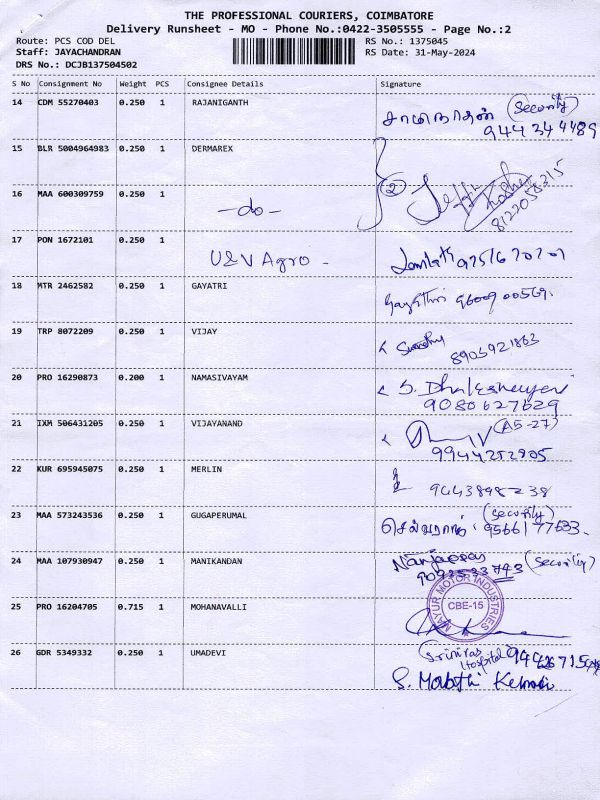 THE PROFESSIONAL COURIERS, COIMBATORE
Delivery Runsheet - MO - Phone No.:0422-3505555 - Page No.:2
Route: PCS COD DEL RS No.: 1375045
Staff: JAYACHANDRAN RS Date: 31-May-2024
DRS No.: DCJB137504502
S No Consignment No Weight PCS Consignee Details Signature
14 CDM 55270403 0.250 1 RAJANIGANTH
சாமிநாதன் (Security)
944 34 4489
15 BLR 5004964983 0.250 1 DERMAREX
16 MAA 600309759 0.250 1
-do- 2 8122058315
17 PON 1672101 0.250 1
U&V Agro -
18 MTR 2462582 0.250 1 GAYATRI
Gayathri 9600900569.
19 TRP 8072209 0.250 1 VIJAY
8905921863
20 PRO 16290873 0.200 1 NAMASIVAYAM
9080627629
21 IXM 506431205 0.250 1 VIJAYANAND
(A5-27)
9944252905
22 KUR 695945075 0.250 1 MERLIN
9443898238
23 MAA 573243536 0.250 1 GUGAPERUMAL
(Security)
9566177633.
24 MAA 107930947 0.250 1 MANIKANDAN
Nanjappan (Security)
25 PRO 16204705 0.715 1 MOHANAVALLI
MAYUR MOTOR INDUSTRIES
CBE-15
26 GDR 5349332 0.250 1 UMADEVI
Srinivas
Hospital
S.